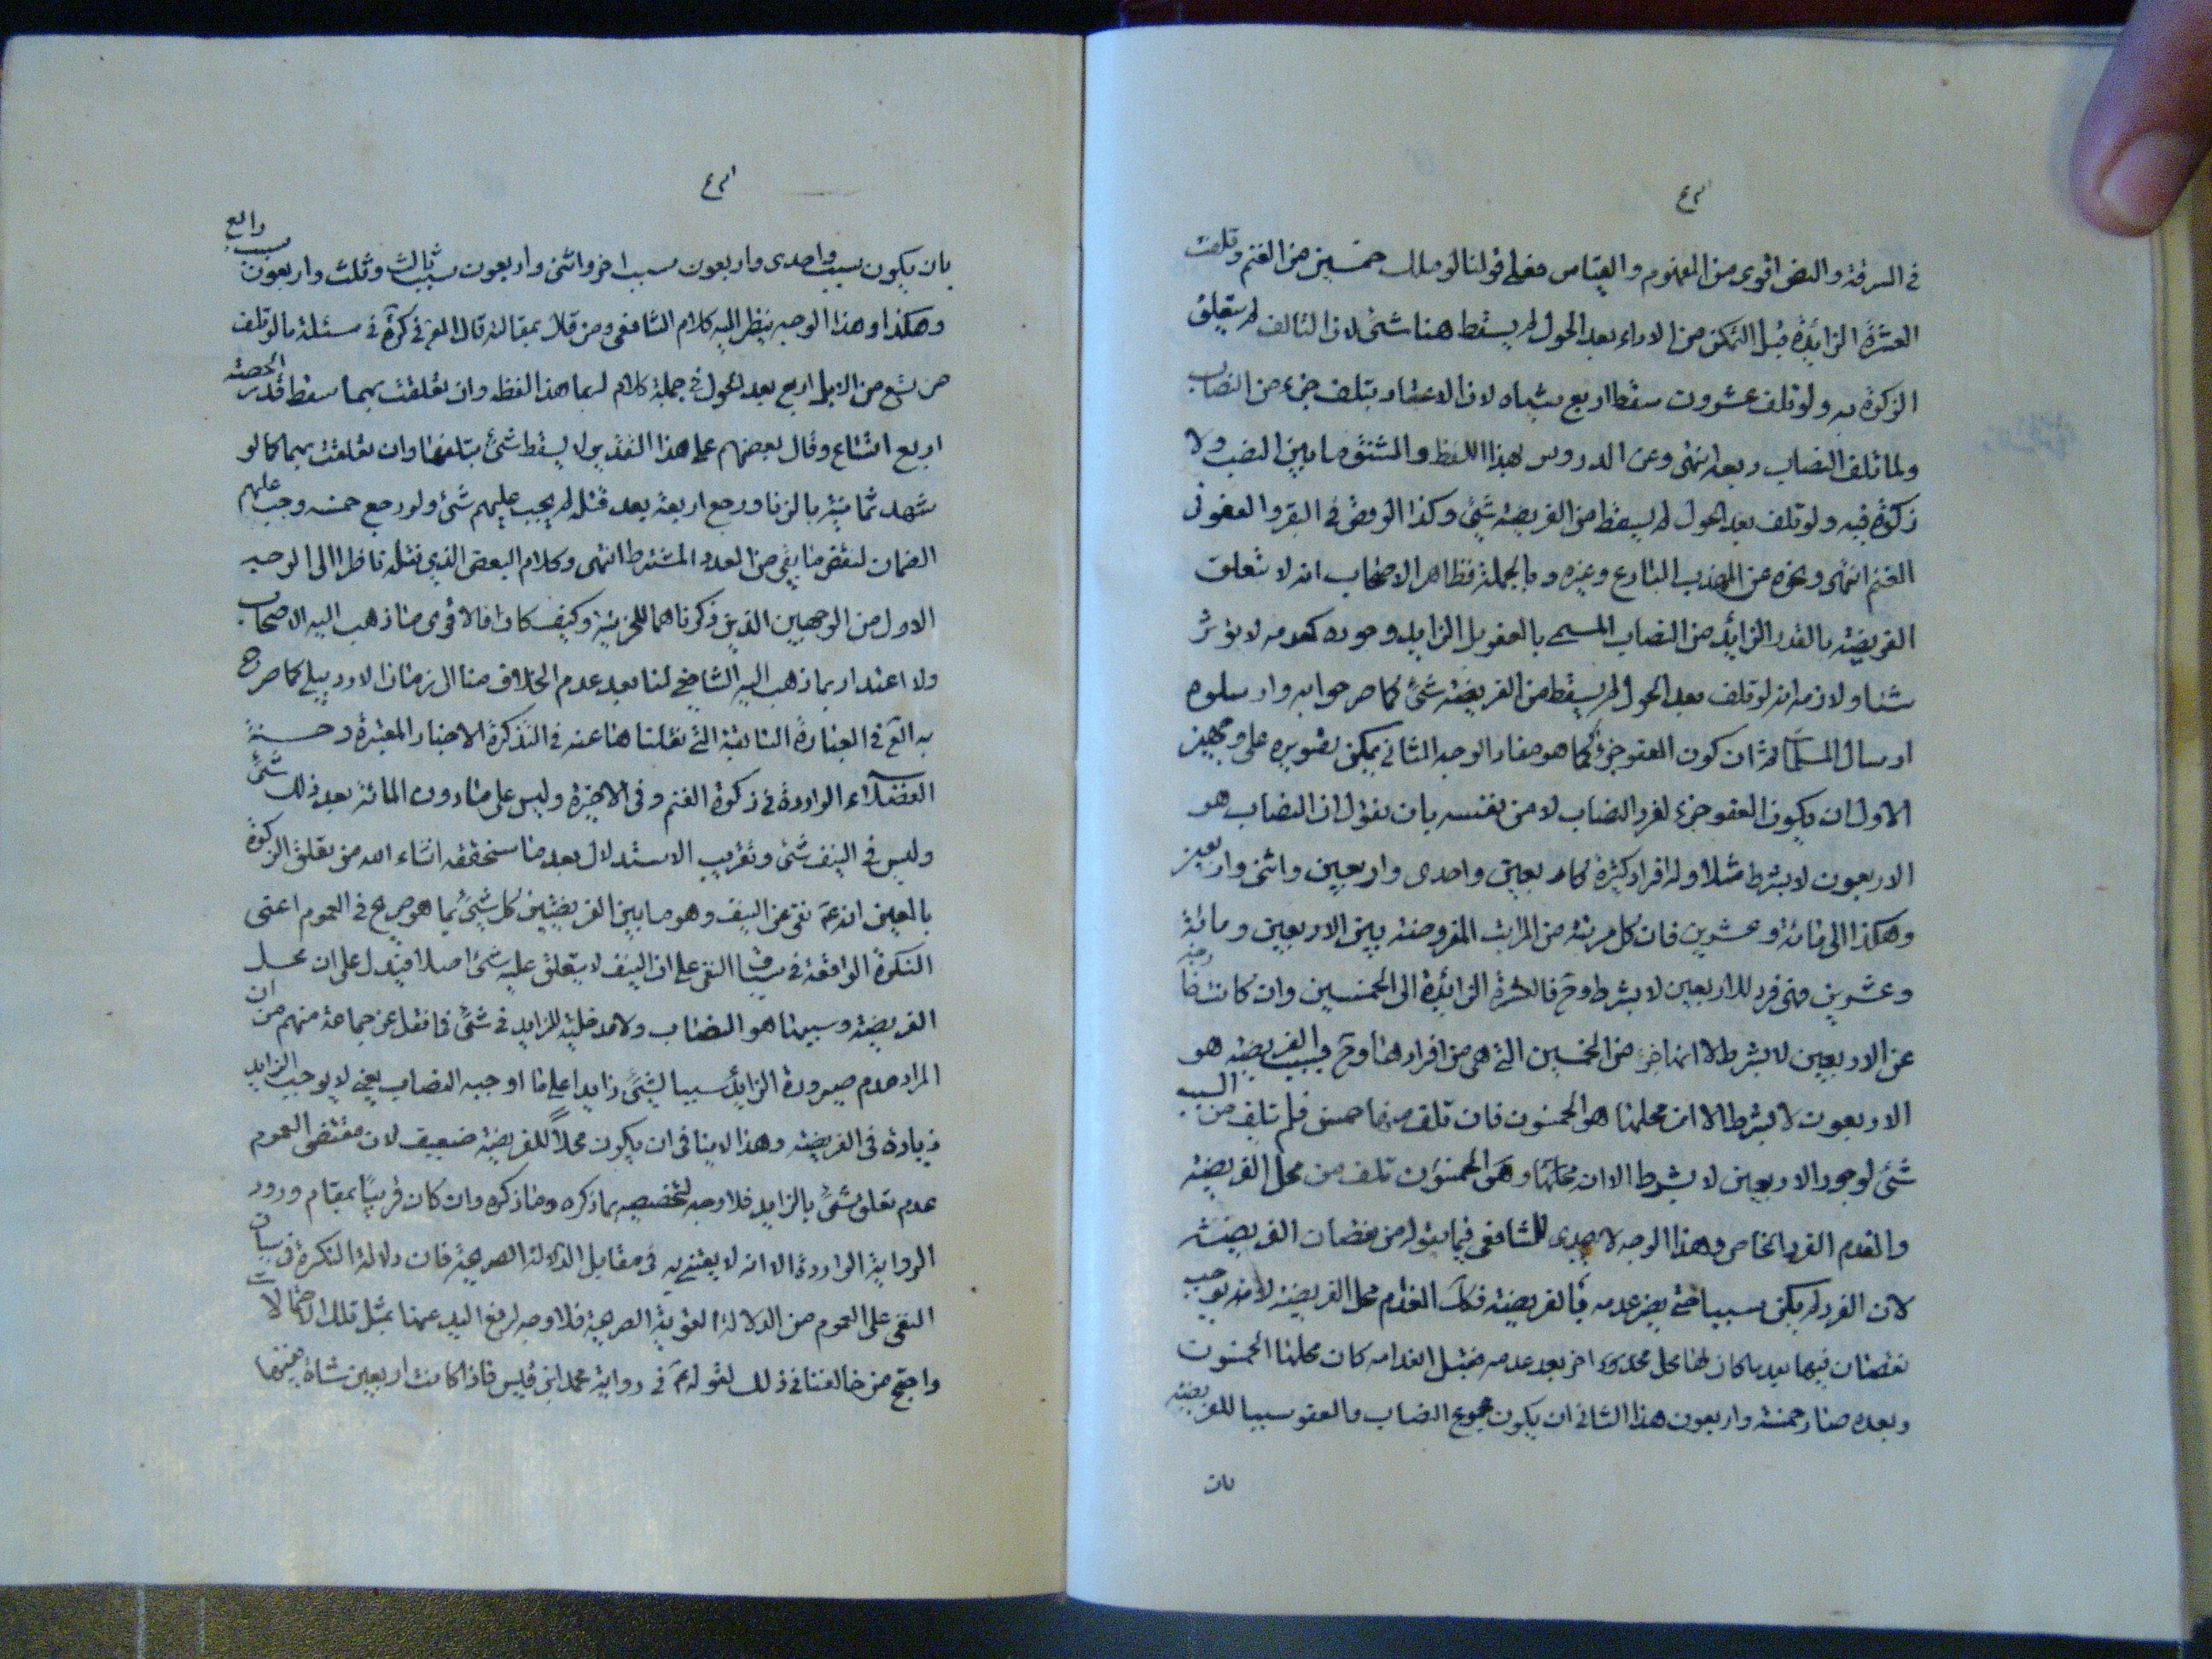 في السرقة والنص اقوى من المفهوم والقياس فعلى قولنا لو ملك خمسين من الغنم وتلفت
العشرة الزائدة قبل التمكن من الاداء بعد الحول لم يسقط هنا شئ لان التالف لم يتعلق
الزكوة به ولو تلف عشرون سقط اربع شياه لان الاعتبار بتلف جزء من النصاب
ولما تلف النصاب ربعه انتهى وعن الدروس بهذا اللفظ والشنق ما بين النصب ولا
زكوة فيه ولو تلف بعد الحول لم يسقط من الفريضة شئ وكذا الوقص في البقر والعفو في
الغنم انتهى ونحوه عن المهذب البارع وغيره وبالجملة فظاهر الاصحاب انه لا تعلق
الفريضة بالقدر الزائد من النصاب المسمى بالعفو بل الزايد وجوده كعدمه لا يؤثر
شيئا ولازمه انه لو تلف بعد الحول لم يسقط من الفريضة شئ كما صرحوا به وارسلوه
ارسال المسلمات ثم ان كون العفو جزء كما هو مفاد الوجه الثاني يمكن تصويره على وجهين
الاول ان يكون العفو جزء لفرد النصاب لا من نفسه بان نقول ان النصاب هو
الاربعون لا بشرط مثلا وله افراد كثيرة كاربعين واحدى واربعين واثنى واربعين
وهكذا الى مائة وعشرين فان كل مرتبة من المراتب المفروضة بين الاربعين ومائة
وعشرين فهى فرد للاربعين لا بشرط وح فالعشرة الزائدة الى الخمسين وان كانت خارجة
عن الاربعين لا بشرط الا انها جزء من الخمسين التى هى من افرادها وح فسبب الفريضة هو
الاربعون لا بشرط الا ان محلها هو الخمسون فان تلف منها خمس فلم تلف من السبب
شئ لوجود الاربعين لا بشرط الا ان محلها وهو الخمسون تلف من محل الفريضة
وانعدم الفرد الخاص وهذا الوجه لا يجدى للشافعى فيما يقوله من نقصان الفريضة
لان الفرد لم يكن سببا حتى يضر عدمه بالفريضة فكان انعدام محل الفريضة لا يوجب
نقصان فيها بعد ما كان لها محل اخر بعد عدمه فقبل انعدامه كان محلها الخمسون
وبعده صار خمسة واربعون هذا الثانى ان يكون مجموع النصاب والعفو سببا للفريضة
بان
بان يكون سبب واحدى واربعون سببا اخر واثنى واربعون سبب ثالث وثلث واربعون سبب رابع
وهكذا وهذا الوجه ينظر اليه كلام الشافعى ومن قال بمقالته قال في كرة في مسئلة ما لو تلف
من تسع من الابل اربع بعد الحول في جملة كلام له ما هذا لفظه وان تعلقت بهما سقط قدر الحصة
اربع اتساع وقال بعضهم على هذا التقدير لا يسقط شئ بتلفها وان تعلقت بهما كما لو
شهد ثمانية بالزنا ورجع اربعة بعد قتله لم يجب عليهم شئ ولو رجع خمسة وجب عليهم
الضمان لنقص ما بقى من العدد المشترط انتهى وكلام البعض الذى نقله ناظر الى الوجه
الاول من الوجهين الذين ذكرناهما للجزئية وكيف كان فالاقوى ما ذهب اليه الاصحاب
ولا اعتداد بما ذهب اليه الشافعى لنا بعد عدم الخلاف منا الى زمان الاردبيلى كما صرح
به في العبارة السابقة التى نقلناها عنه في التذكرة الاخبار المعتبرة وحسنة
الفضلاء الواردة في زكوة الغنم وفى الاخيرة وليس على ما دون المائة بعد ذلك شئ
وليس في النيف شئ وتقريب الاستدلال بعد ما سنحققه انشاء الله من تعلق الزكوة
بالعين انه ع نفى عن النيف وهو ما بين الفريضتين كل شئ بما هو صريح في العموم اعنى
النكرة الواقعة في سياق النفى على ان النيف لا يتعلق عليه شئ اصلا فيدل على ان محل
الفريضة وسببها هو النصاب ولا مدخلية للزايد في شئ فما نقل عن جماعة منهم من ان
المراد عدم صيرورة الزايد سببا لشئ زايدا على ما اوجبه النصاب يعنى لا يوجب الزايد
زيادة فى الفريضة وهذا لا ينافى ان يكون محلا للفريضة ضعيف لان مقتضى العموم
عدم تعلق شئ بالزايد فلا وجه لتخصيصه بما ذكره وما ذكره وان كان قريبا بمقام ورود
الرواية الواردة الا انه لا يعتنى به في مقابل الدلالة الصريحة فان دلالة النكرة في سياق
النفى على العموم من الدلالة القوية الصريحة فلا وجه لرفع اليد عنها بمثل تلك الاحتمالات
واحتج من خالفنا في ذلك لقوله ع في رواية محمد بن قيس فاذا كانت اربعين شاة ففيها